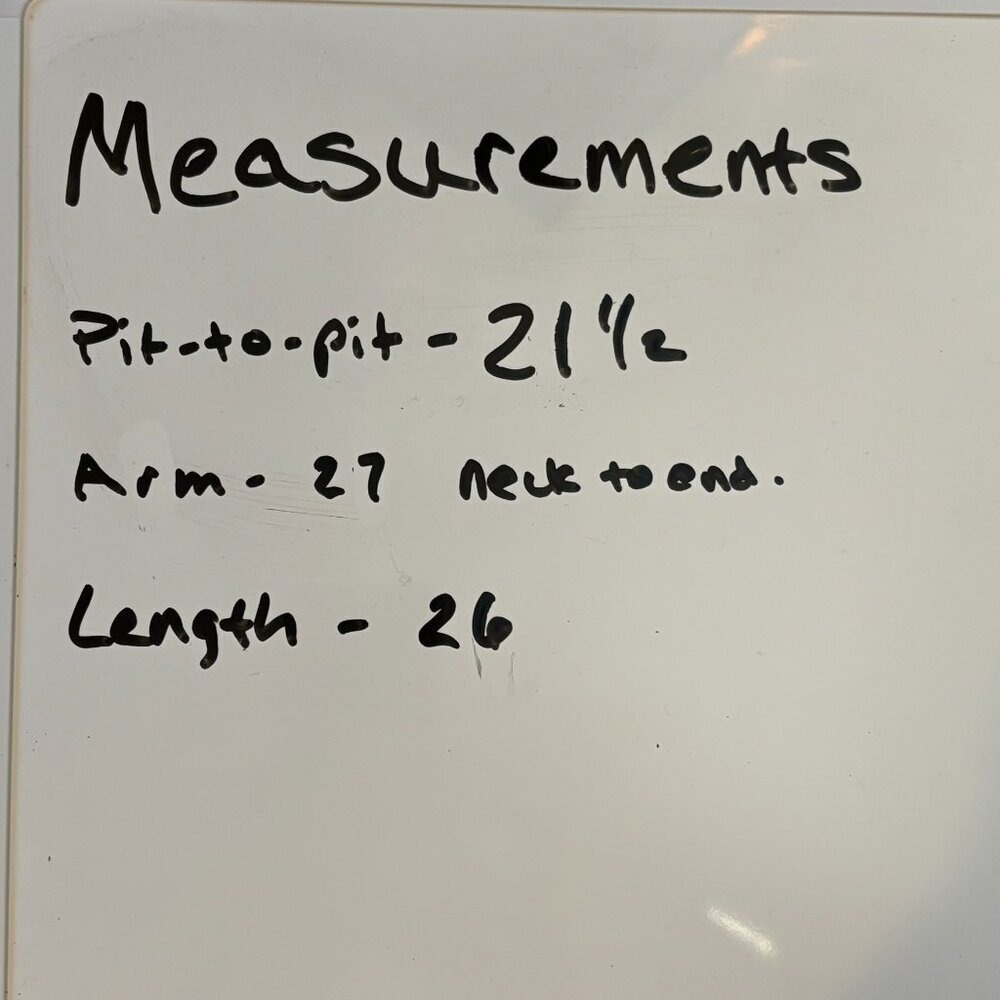 Measurements
Pit-to-pit - 21 1/2
Arm - 27 neck to end.
Length - 26